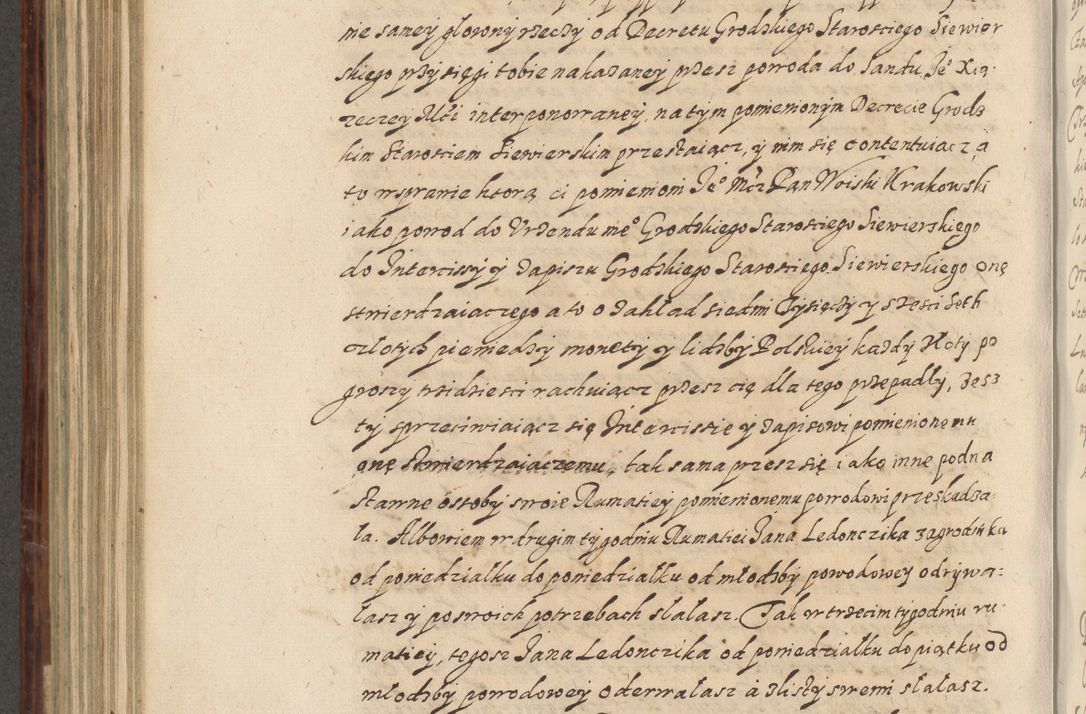 nie samey głowny rzeczy od Decretu Grodzkiego Starosciego Siewier
skiego przysięgi tobie nakazaney przesz powoda do Sandu Je° Xią
zeczey Mci interponowaney, na tym pomienionym Decrecie Grodz
kim Starosciem Siewierskim przestaiącz, y nim się contentuiącz a
to wspranie ktorą ci pomienioni Je° Mcz Pan Woiski Krakowski
iako powod do Vrzendu me° Grodzkiego Starosciego Siewierskiego
do Intercissy y Zapiszu Grodzkiego Starosciego Siewierskiego onę
stwierdzaiaczego a to o Zakład siedmi Tysięczy y szesci seth
człotych pieniedzy monety y lidzby Polskiey kazdy złoty po
groszy trzidziesci rachuiącz przesz cię dla tego przepadły, Zesz
ty sprzeciwiaiącz się Intercissie y Zapisowi pomienionemu
onę stwierdzaiączemu, tak sama przesz się iako inne podna
stawne ossoby swoie Rumatiey pomienionemu powodowi przeskadza=
ła. Albowiem w drugim tygodniu Rumatiei Jana Ledonczika zagrodnika
od poniedziałku do poniedziałku od młodzby powodowey odrywa=
łasz y poswoich potrzebach słałasz. Tak w trzecim tygodniu ru=
matiey, tegosz Jana Ledonczika od poniedziałku do piątku od
młodzby powodowey oderwałasz a zlisty swemi słałasz.